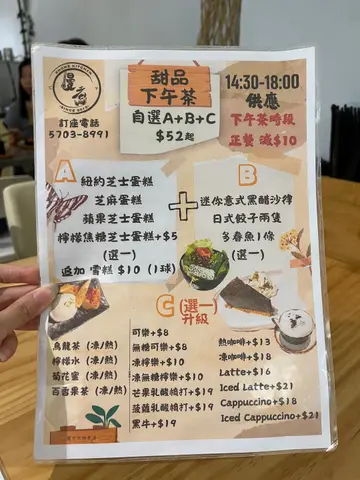 PHONE KITCHEN
慢煮
SINCE 2022
訂座電話
5703-8991
甜品
下午茶
自選A+B+C
$52起
14:30-18:00
供應
下午茶時段
正餐 減$10
A
紐約芝士蛋糕
芝麻蛋糕
蘋果芝士蛋糕
檸檬焦糖芝士蛋糕+$5
(選一)
追加 雪糕 $10 (1球)
+
B
迷你意式黑醋沙律
日式餃子兩隻
多春魚1條
(選一)
C (選一)
升級
烏龍茶 (凍/熱)
檸檬水 (凍/熱)
菊花蜜 (凍/熱)
百香果茶 (凍/熱)
可樂+$8
無糖可樂+$8
凍檸樂+$10
凍無糖檸樂+$10
芒果乳酸梳打+$19
菠蘿乳酸梳打+$19
黑牛+$19
熱咖啡+$13
凍咖啡+$18
Latte+$16
Iced Latte+$21
Cappuccino+$18
Iced Cappuccino+$21